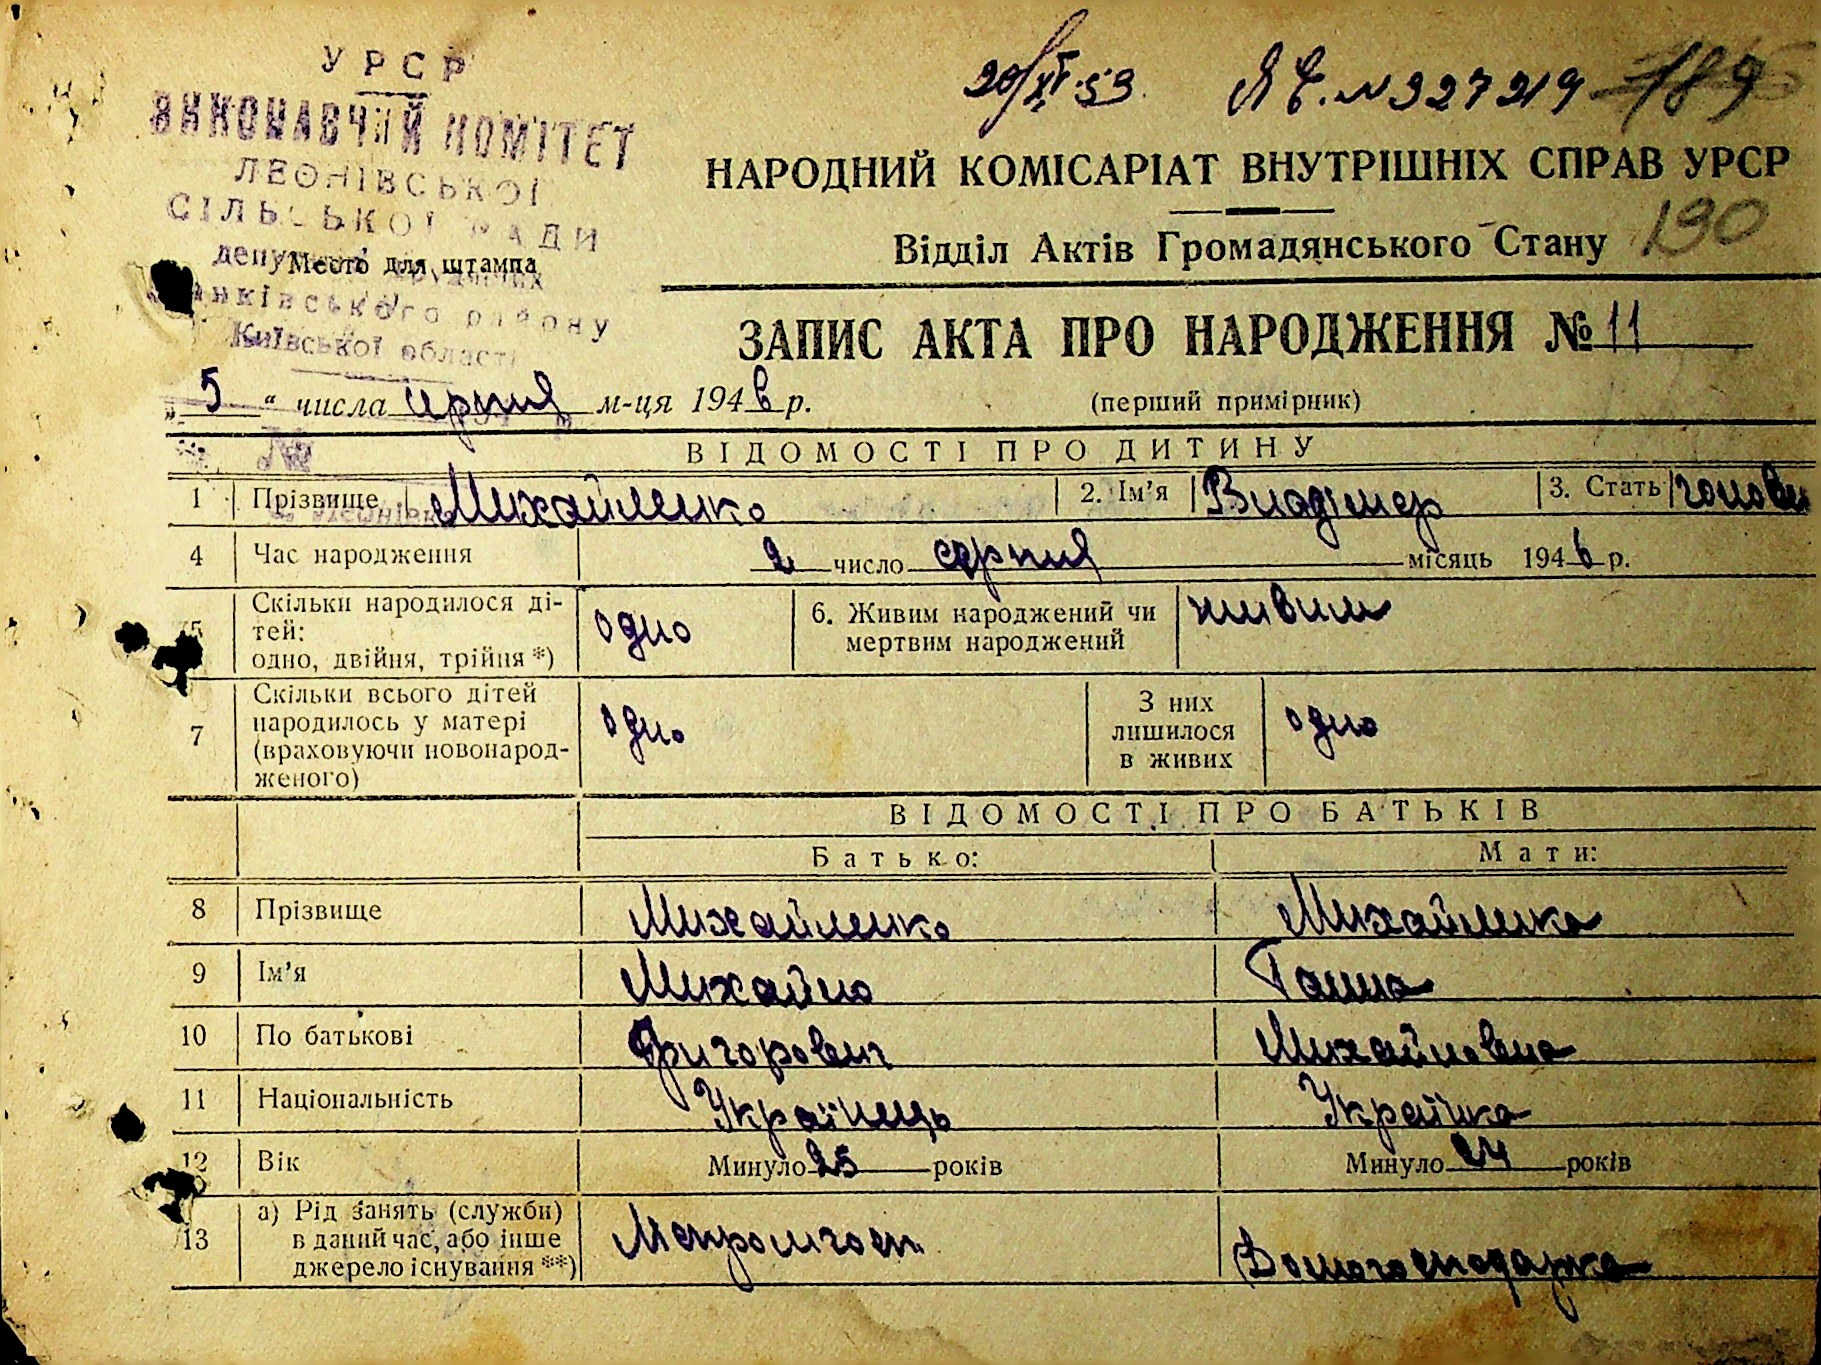 УРСР
ВИКОНАВЧИЙ КОМІТЕТ
ЛЕОНІВСЬКОЇ
СІЛЬСЬКОЇ РАДИ
депутатів трудящих
Место для штампа
Іванківського району
Київської області
20/XI 53 ЯЄ. N 327219 189
НАРОДНИЙ КОМІСАРІАТ ВНУТРІШНІХ СПРАВ УРСР
Відділ Актів Громадянського Стану 190
ЗАПИС АКТА ПРО НАРОДЖЕННЯ № 11
(перший примірник)
„5“ числа серпня м-ця 1946 р.
№
ВІДОМОСТІ ПРО ДИТИНУ
1 Прізвище Михайленко 2. Ім’я Владімер 3. Стать чолові
4 Час народження 2 число серпня місяць 1946 р.
5 Скільки народилося ді-
тей:
одно, двійня, трійня *) одно
6. Живим народжений чи
мертвим народжений живим
7 Скільки всього дітей
народилось у матері
(враховуючи новонарод-
женого) одно
З них
лишилося
в живих одно
ВІДОМОСТІ ПРО БАТЬКІВ
Батько: Мати:
8 Прізвище Михайленко Михайленко
9 Ім’я Михайло Ганна
10 По батькові Григорович Михайловна
11 Національність Українець Українка
12 Вік Минуло 25 років Минуло 24 років
13 а) Рід занять (служби)
в даний час, або інше
джерело існування **) Домогосподарка